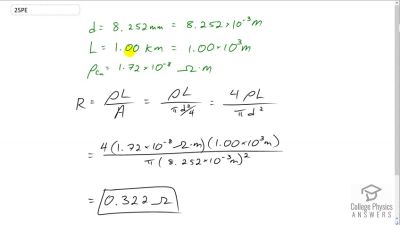 25PE
d = 8.252 mm = 8.252×10⁻³ m
L = 1.00 km = 1.00×10³ m
ρCu = 1.72×10⁻⁸ Ω·m
R = ρL/A = ρL/(πd²/4) = 4ρL/πd²
= 4(1.72×10⁻⁸ Ω·m)(1.00×10³ m)/π(8.252×10⁻³ m)²
= 0.322 Ω
College Physics
ANSWERS